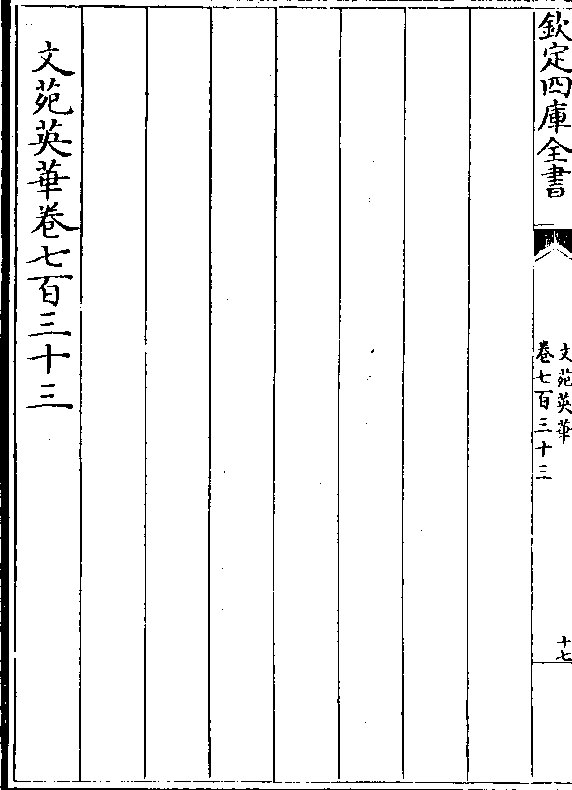 欽定四庫全書
文苑英華
卷七百三十三
十七
文苑英華卷七百三十三